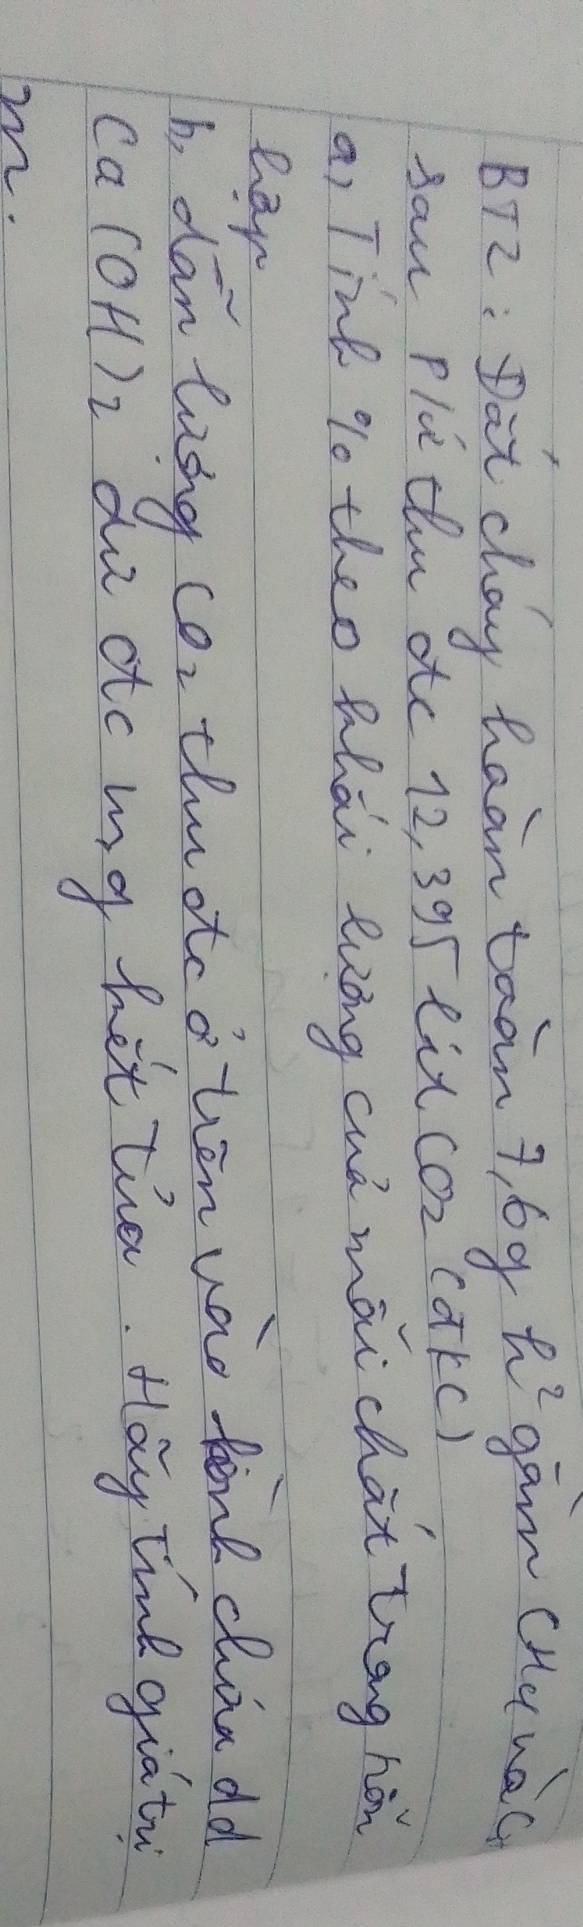 BT2: Đốt cháy hoàn toàn 7,6g h² gồm CH4 và C
sau p/ứ thu đc 12,395 lít CO2 (đkc)
a, Tính % theo khối lượng của mỗi chất trong hỗn
hợp
b, dẫn lượng CO2 thu đc ở trên vào bình chứa dd
Ca(OH)2 dư đc m,g kết tủa. Hãy tính giá trị
m.